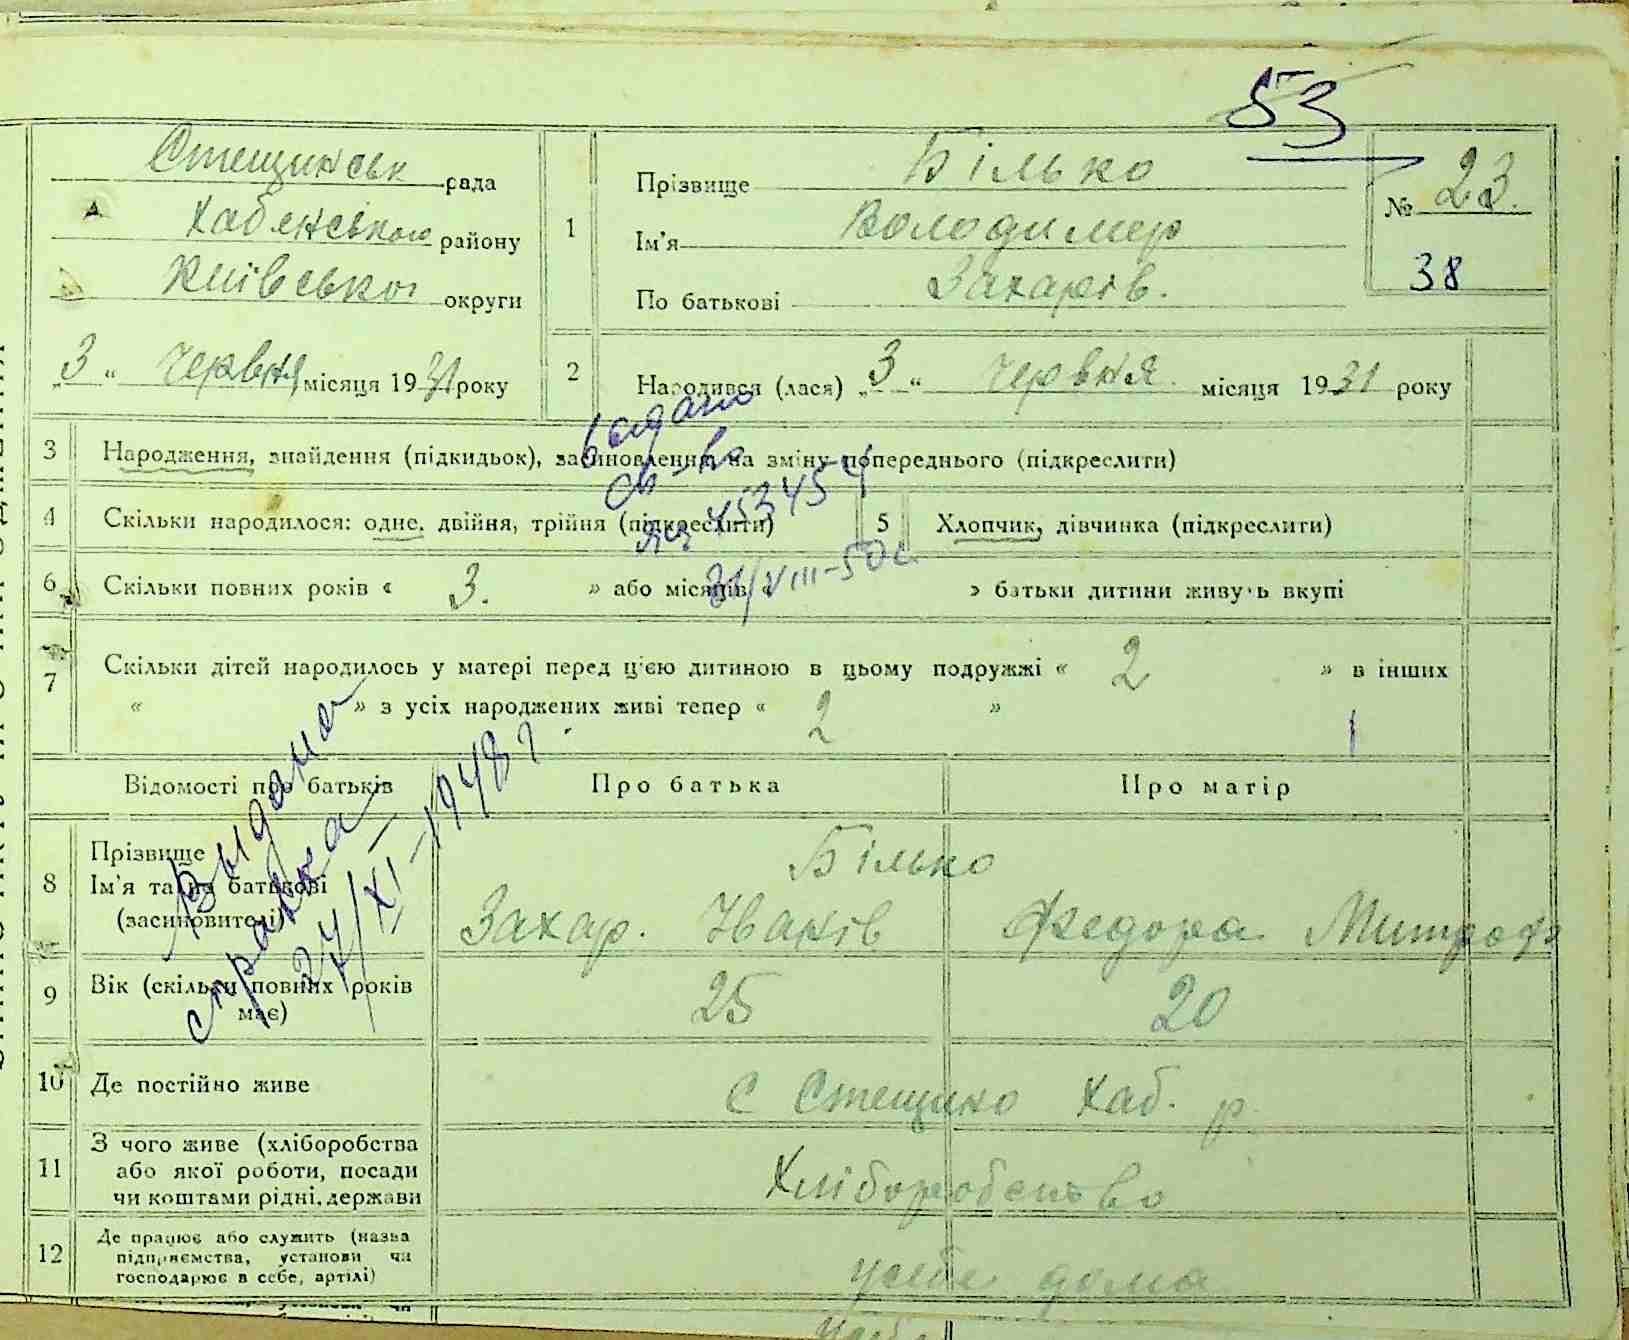 53
Стещинськ рада
Хабенського району
Київської округи
„3“ червня місяця 1931 року
1
Прізвище Білько
Ім'я Володимер
По батькові Захарів.
№ 23.
38
2
Народився (лася) „3“ червня місяця 1931 року
3 Народження, знайдення (підкидьок), засиновлення, на зміну попереднього (підкреслити)
4 Скільки народилося: одне, двійня, трійня (підкреслити)
5 Хлопчик, дівчинка (підкреслити)
6 Скільки повних років « 3. » або місяців « » батьки дитини живуть вкупі
7 Скільки дітей народилось у матері перед цією дитиною в цьому подружжі « 2 » в інших
« » з усіх народжених живі тепер « 2 »
видано
св-во
453454
31/VIII-50 г.
Выдана
справка
24/XI-1948 г.
Відомості про батьків
Про батька
Про матір
8 Прізвище
Ім'я та по батькові
(засиновителі)
Білько
Захар. Іванів
Федора Митроф
9 Вік (скільки повних років
має)
25
20
10 Де постійно живе
с Стещино Хаб. р.
11 З чого живе (хліборобства
або якої роботи, посади
чи коштами рідні, держави
Хліборобство
12 Де працює або служить (назва
підприємства, установи чи
господарює в себе, артілі)
дома